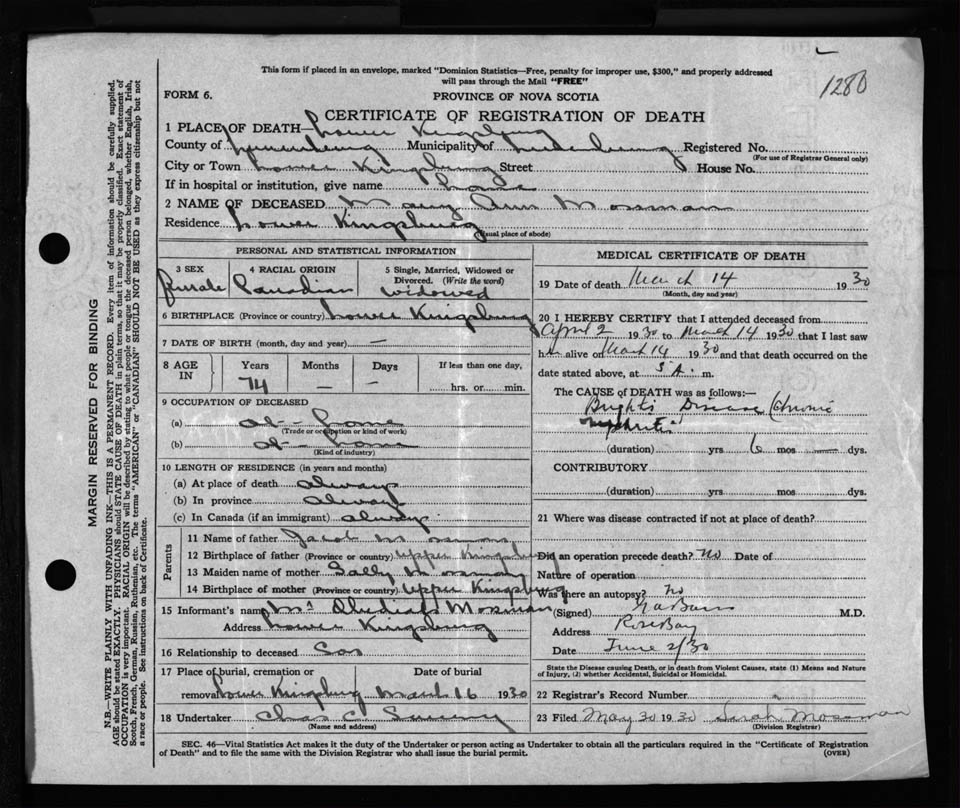 This form if placed in an envelope, marked "Dominion Statistics—Free, penalty for improper use, $300," and properly addressed
will pass through the Mail "FREE"
1280
FORM 6.
PROVINCE OF NOVA SCOTIA
CERTIFICATE OF REGISTRATION OF DEATH
1 PLACE OF DEATH— Lower Kingsburg
County of Lunenburg Municipality of Lunenburg Registered No.
(For use of Registrar General only)
City or Town Lower Kingsburg Street House No.
If in hospital or institution, give name
2 NAME OF DECEASED Mary Ann Mosman
Residence Lower Kingsburg
(usual place of abode)
PERSONAL AND STATISTICAL INFORMATION
3 SEX 4 RACIAL ORIGIN 5 Single, Married, Widowed or
Divorced. (Write the word)
Female Canadian widowed
6 BIRTHPLACE (Province or country) Lower Kingsburg
7 DATE OF BIRTH (month, day and year) —
8 AGE IN Years Months Days If less than one day,
74 — — hrs. or min.
9 OCCUPATION OF DECEASED
(a) at - home
(Trade or occupation or kind of work)
(b) at - home
(Kind of industry)
10 LENGTH OF RESIDENCE (in years and months)
(a) At place of death always
(b) In province always
(c) In Canada (if an immigrant) always
Parents
11 Name of father Jacob
12 Birthplace of father (Province or country) Upper Kingsburg
13 Maiden name of mother Sally
14 Birthplace of mother (Province or country) Upper Kingsburg
15 Informant's name Mr Mosman
Address Lower Kingsburg
16 Relationship to deceased Son
17 Place of burial, cremation or Date of burial
removal Lower Kingsburg March 16 1930
18 Undertaker Chas C
(Name and address)
MEDICAL CERTIFICATE OF DEATH
19 Date of death March 14 1930
(Month, day and year)
20 I HEREBY CERTIFY that I attended deceased from
April 2 1930 to March 14 1930 that I last saw
her alive on March 14 1930 and that death occurred on the
date stated above, at 5 A. m.
The CAUSE of DEATH was as follows:—
Brights Disease (Chronic
nephritis
(duration) yrs 6 mos — dys.
CONTRIBUTORY
(duration) yrs. mos dys.
21 Where was disease contracted if not at place of death?
Did an operation precede death? No Date of
Nature of operation
Was there an autopsy? No
(Signed) M.D.
Address Rose Bay
Date June 2/30
State the Disease causing Death, or in death from Violent Causes, state (1) Means and Nature
of Injury, (2) whether Accidental, Suicidal or Homicidal.
22 Registrar's Record Number
23 Filed May 30 1930 Mossman
(Division Registrar)
SEC. 46—Vital Statistics Act makes it the duty of the Undertaker or person acting as Undertaker to obtain all the particulars required in the "Certificate of Registration
of Death" and to file the same with the Division Registrar who shall issue the burial permit.
(OVER)
MARGIN RESERVED FOR BINDING
N.B.—WRITE PLAINLY WITH UNFADING INK—THIS IS A PERMANENT RECORD. Every item of information should be carefully supplied.
AGE should be stated EXACTLY. PHYSICIANS should STATE CAUSE OF DEATH in plain terms, so that it may be properly classified. Exact statement of
OCCUPATION is very important. RACIAL ORIGIN will be described by stating to what people or tongue the deceased person belonged, whether English, Irish,
Scotch, French, German, Russian, Ruthenian, etc. The terms "AMERICAN" or "CANADIAN" SHOULD NOT BE USED as they express citizenship but not
a race or people. See instructions on back of Certificate.